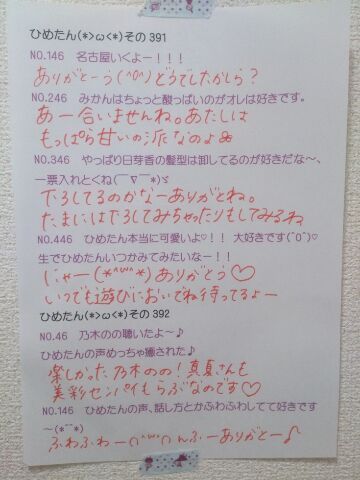 ひめたん(*>ω<*)その391
NO.146　名古屋いくよー！！！
ありがとーう(^o^)どうでしたかしら？
NO.246　みかんはちょっと酸っぱいのがオレは好きです。
あー合いませんね。あたしは
もっぱら甘いの派なのよ
NO.346　やっぱり日芽香の髪型は卸してるのが好きだな～、
一票入れとくね(￣∇￣*)ゞ
下ろしてるのかなーありがとね。
たまには下ろしてみちゃったりもしてみるね
NO.446　ひめたん本当に可愛いよ♡！！ 大好きです(^0^)♡
生でひめたんいつかみてみたいなー！！
にゃー(*^ω^*)ありがとう♡
いつでも遊びにおいでね待ってるよー
ひめたん(*>ω<*)その392
NO.46　乃木のの聴いたよ～♪
ひめたんの声めっちゃ癒された♪
楽しかった乃木のの！真夏さんを
美彩センパイもらぶなのです♡
NO.146　ひめたんの声、話し方とかふわふわしてて好きです
～(*￣ー￣)
ふわふわーの^ω^のんふーありがとー♪